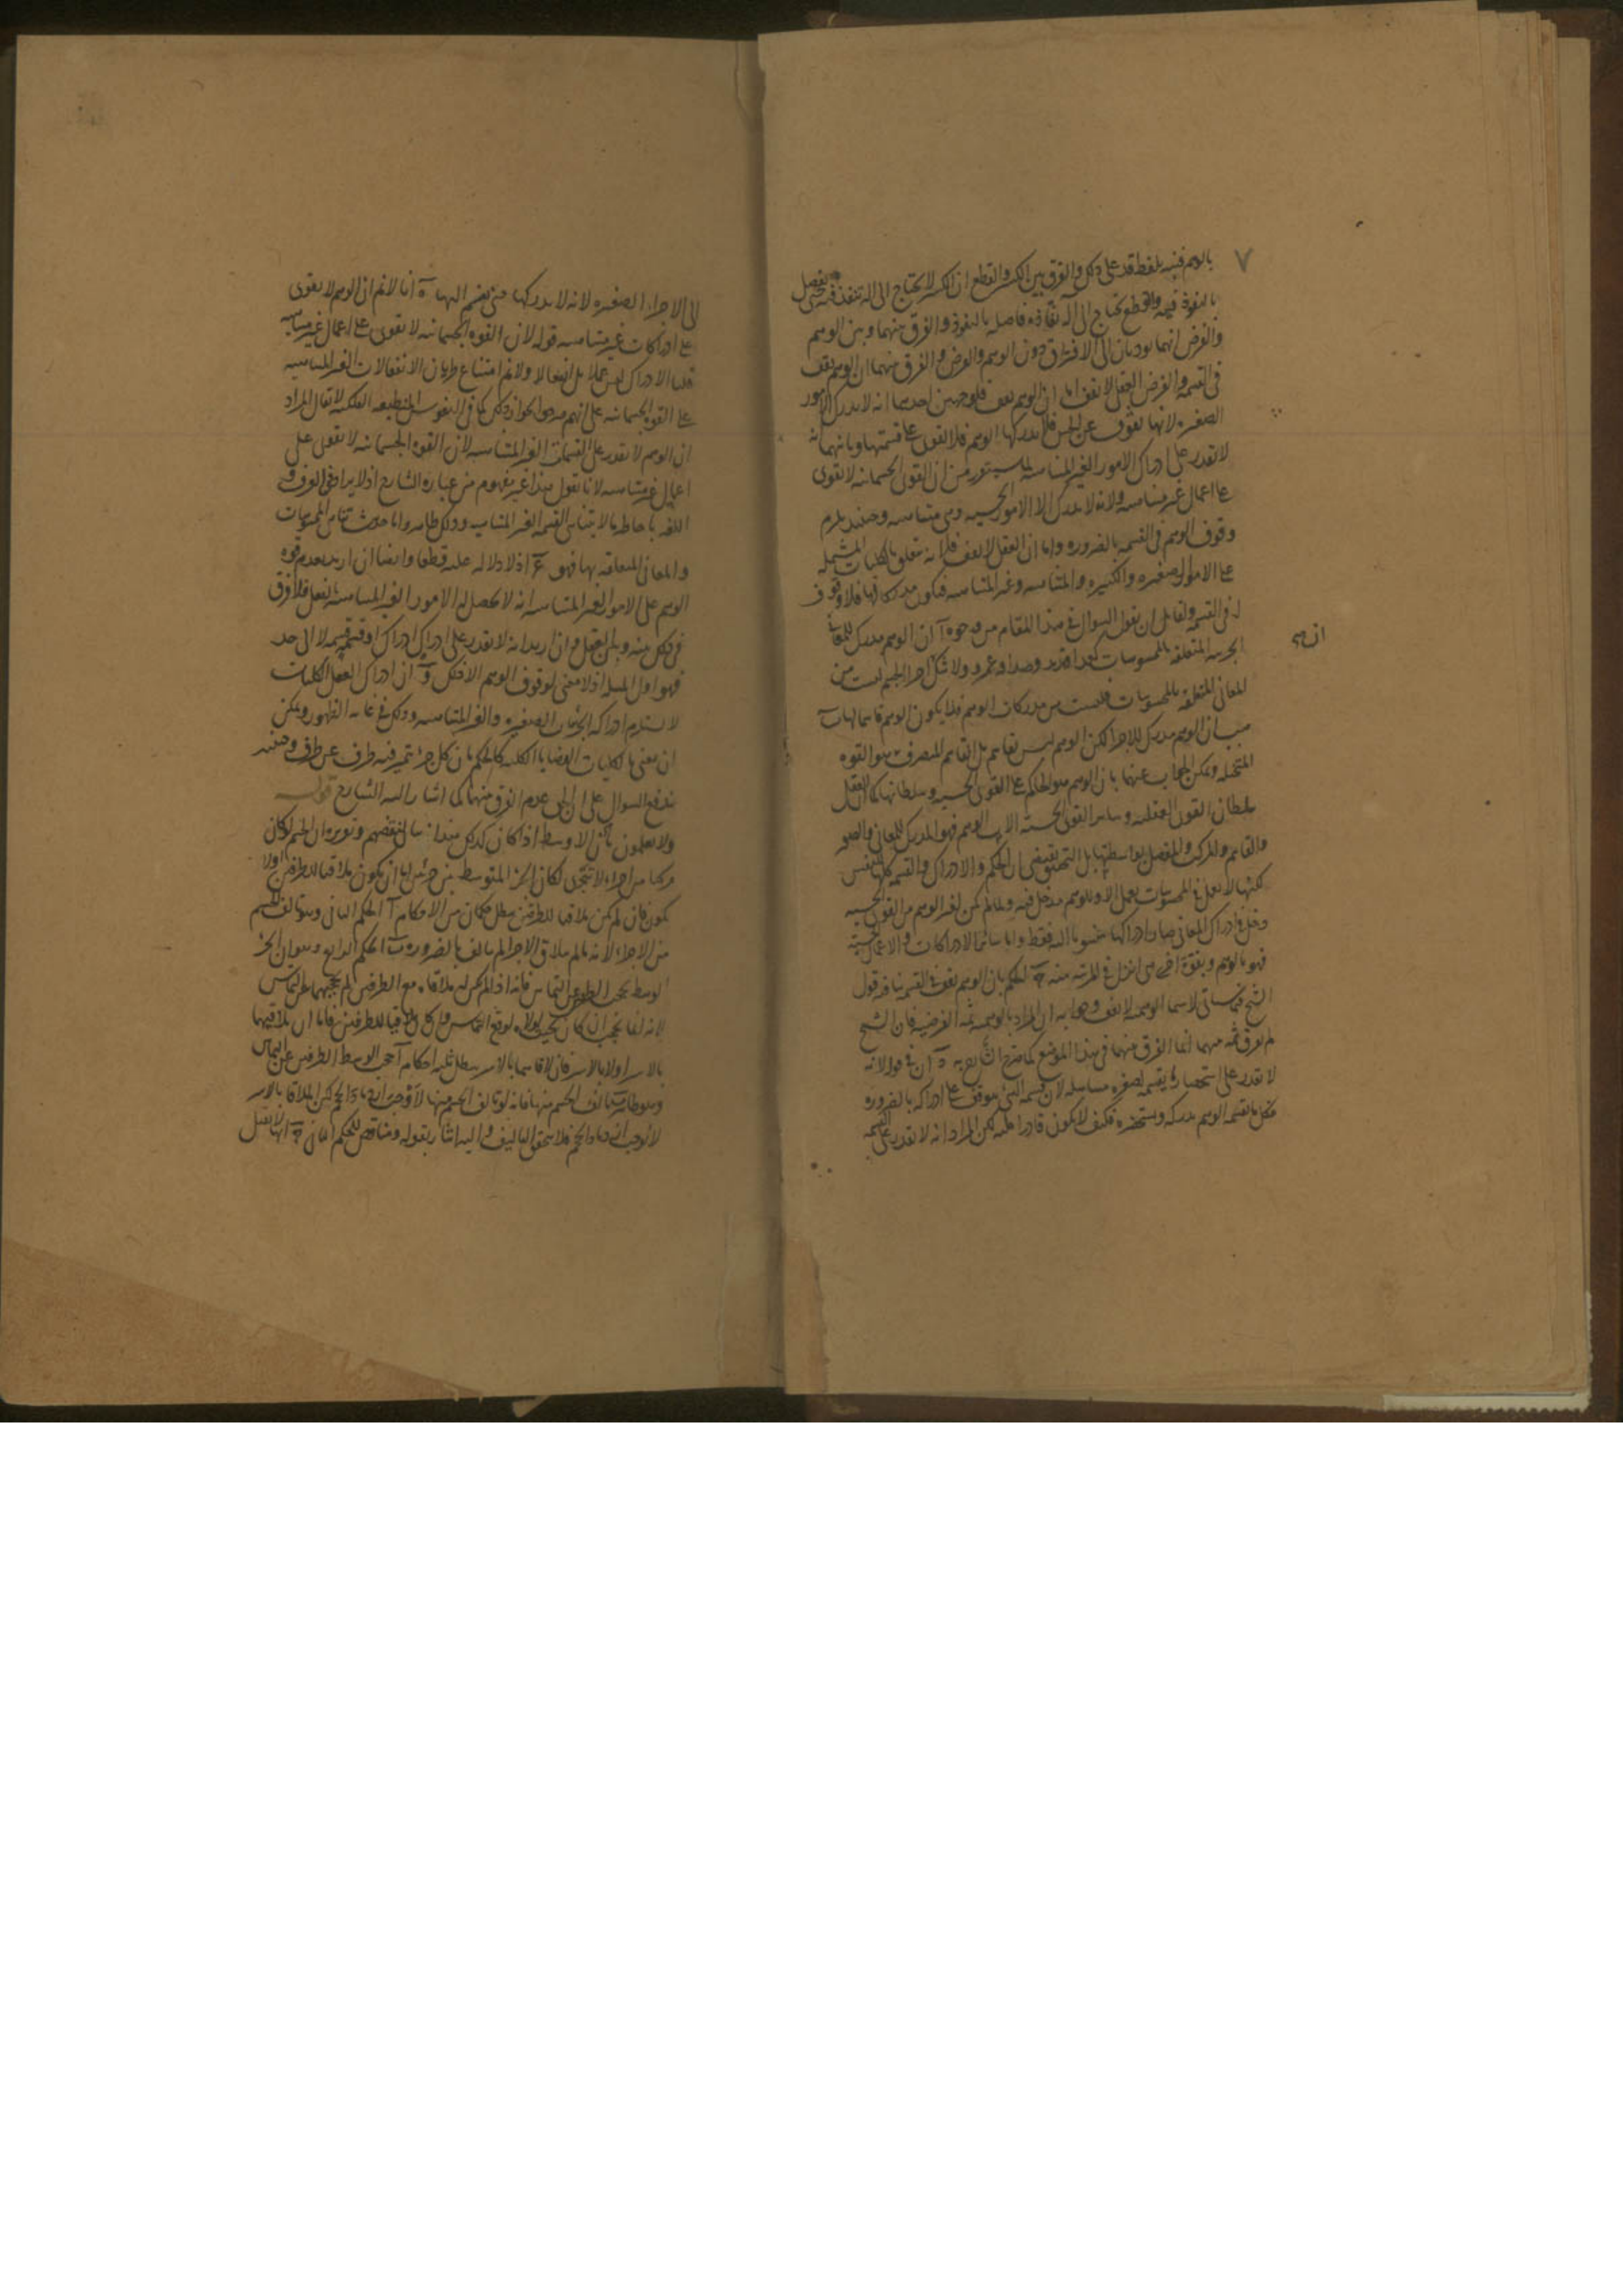 ٧
بالوهم فنبه بلفظ قد على ذلك والفرق بين الكسر والقطع ان الكسر لا يحتاج الى الة تنفذ فيه حتى يفصل
بالنفوذ فيه والقطع يحتاج الى آلة نفاذة فاصلة بالنفوذ والفرق بينهما وبين الوهم
والفرض انهما يوديان الى الافتراق دون الوهم والفرض والفرق بينهما ان الوهم يقف
فى القسمه والفرض العقلى لا يقف اما ان الوهم يقف فلوجهين احدهما انه لا يدرك الامور
الصغيره لانها تفوت عن الحس فلا يدركها الوهم فلا يقوى على قسمتها وثانيهما انه
لا يقدر على ادراك الامور الغير المتناهيه لما سيتقرر من ان القوى الجسمانيه لا تقوى
على اعمال غير متناهيه ولانه لا يدرك الا الامور الحسيه وهى متناهيه وحينئذ يلزم
وقوف الوهم فى القسمه بالضروره واما ان العقل لا يقف فلانه متعلق بالكليات المشتمله
على الامور الصغيره والكبيره والمتناهيه وغير المتناهيه فيكون مدركا لها فلا وقوف
له فى القسمه ولقائل ان يقول السوال فى هذا المقام من وجوه آ ان الوهم مدرك للمعانى
الجزييه المتعلقه بالمحسوسات كعداوة زيد وصداقة عمرو ولا شك ان اجزا الجسم ليست من
المعانى المتعلقه بالمحسوسات فليست من مدركات الوهم فلا يكون الوهم قاسما لها ب
هب ان الوهم مدرك للاجزا لكن الوهم ليس بقاسم بل القاسم المتصرف هو القوه
المتخيله ويمكن الجواب عنهما بان الوهم هو الحاكم على القوى الحسيه وسلطانها كما ان العقل
سلطان القوى العقليه وساير القوى الحسيه الات الوهم فهو المدرك للمعانى والصور
والقاسم والمركب والمفصل بواسطتها بل التحقيق يقتضى ان الحكم والادراك والقسمه كلها للنفس
لكنها لا تعمل فى المحسوسات بعمل الا وللوهم مدخل فيه ولما لم يكن لغير الوهم من القوى الحسيه
دخل فى ادراك المعانى صار ادراكها منسوبا اليه فقط واما سائر الادراكات والاعمال الحسيه
فهو بالوهم وبقوة اخرى هى انزل فى المرتبه منه ج الحكم بان الوهم يقف فى القسمه ينافيه قول
الشيخ فيما سياتى لا سيما الوهميه لا تقف وجوابه ان المراد بالوهميه ثمه الفرضيه فان الشيخ
لم يفرق ثمه بينهما انما الفرق بينهما فى هذا الموضع كما صرح الشارح به د ان فى قوله لانه
لا يقدر على استحضار ما يقسمه لصغره مساهله لان قسمه الشى موقوف على ادراكه بالضروره
فكل ما يقسمه الوهم يدركه ويستحضره فكيف لا يكون قادرا عليه لكن المراد انه لا يقدر على القسمه
الى الاجزاء الصغيره لانه لا يدركها حتى يقسم اليها ه انا لا نم ان الوهم لا يقوى
على ادراكات غير متناهيه قوله لان القوه الجسمانيه لا تقوى على اعمال غير متناهيه
قلنا الادراك ليس عملا بل انفعالا ولا نم امتناع طريان الانفعالات الغير المتناهيه
على القوه الجسمانيه على انهم صرحوا بجواز ذلك كما فى النفوس المنطبعه الفلكيه لا يقال المراد
ان الوهم لا يقدر على القسمات الغير المتناهيه لان القوه الجسمانيه لا تقوى على
اعمال غير متناهيه لانا نقول هذا غير مفهوم من عباره الشارح اذ لا يراد فى العرف و
اللغه باحاطه ما لا يتناهى القسمه الغير المتناهيه وذلك ظاهر واما حديث تناهى المحسوسات
والمعانى المتعلقه بها فهو اذ لا دلاله عليه قطعا وايضا ان اريد بعدم قوه
الوهم على الامور الغير المتناهيه انه لا يحصل له الامور الغير المتناهيه بالفعل فلا فرق
فى ذلك بينه وبين العقل وان اريد انه لا يقدر على ادراك ادراك او قسمه قسمه لا الى حد
فهو اول المسله اذ لا معنى لوقوف الوهم الا ذلك و ان ادراك العقل الكليات
لا يستلزم ادراكه الجزئيات الصغيره والغير المتناهيه وذلك فى غايه الظهور ويمكن
ان يعنى بالكليات القضايا الكليه كالحكم بان كل جزء يتميز فيه طرف عن طرف وحينئذ
يندفع السوال على ان الحق عدم الفرق بينهما كما اشار اليه الشارح قوله
ولا يعلمون بان الاوسط اذا كان كذلك هذا بيان لنقضهم وتقريره ان الجسم لو كان
مركبا من اجزاء لا تتجزى لكان الجزء المتوسط بين جزئين اما ان يكون ملاقيا للطرفين او لا
يكون فان لم يكن ملاقيا للطرفين يبطل حكمان من الاحكام آ الحكم الثانى وهو تالف الجسم
من الاجزاء لانه ما لم يتلاق الاجزا لم يتالف بالضروره ب الحكم الرابع وهو ان الجزء
الوسط يحجب الطرفين عن التماس فانه اذا لم يكن له ملاقاه مع الطرفين لم يحجبهما عن التماس
لانه انما يحجب ان كان بحيث لولاه لوقع التماس وان كان ملاقيا للطرفين فاما ان يلاقيهما
بالاسر او لا بالاسر فان لاقاهما بالاسر يبطل ثلثه احكام آ حجب الوسط الطرفين عن التماس
وهو ظاهر ب تالف الجسم منها فانه لو تالف الجسم منها لاوجب ازدياد الحجم لكن الملاقاة بالاسر
لا توجب ازدياد الحجم فلا يتحقق التاليف واليه اشار بقوله ومناقض للحكم الثانى ج انها لا تقبل